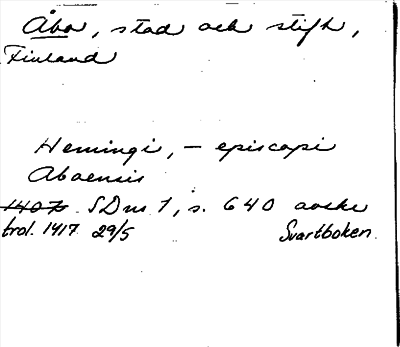 Åbo, stad och stift,
Finland
Hemingi, – episcopi
Aboensis
1407 SD ns 1, s. 640 avskr
trol. 1417 29/5 Svartboken.